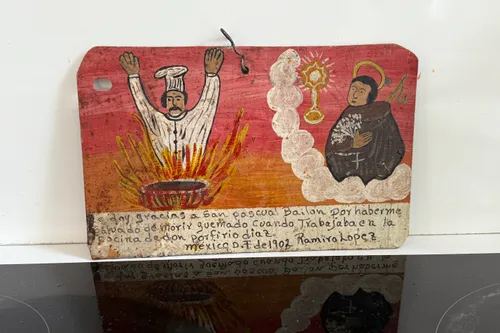 e doy gracias a San pascual Bailon Por haberme
salvado de morir quemado Cuando Trabajaba en la
cocina de don porfirio diaz
méxico D.f de 1902 Ramiro Lopez